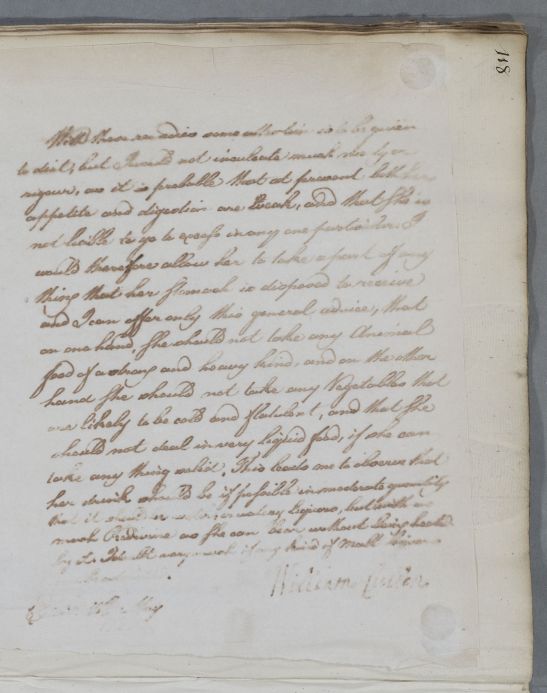 118
With these remedies some attention is to be given
to diet; but I would not inculcate much nicety or
rigour, as it is probable that at present both her
appetite and digestion are weak, and that she is
not liable to go to excess in any one particular. I
would therefore allow her to take a part of any
thing that her stomach is disposed to receive
and I can offer only this general advice, that
on one hand, she should not take any Animal
food of a strong and heavy kind, and on the other
hand she should not take any Vegetables that
are likely to be cold and flatulent, and that she
should not deal in very liquid food, if she can
take any thing solid. This leads me to observe that
her drink should be if possible in moderate quantity
that it should watery liquors, but with as
much Red wine as she can bear without being heated
by it. I any kind of Malt liquor
William Cullen
May